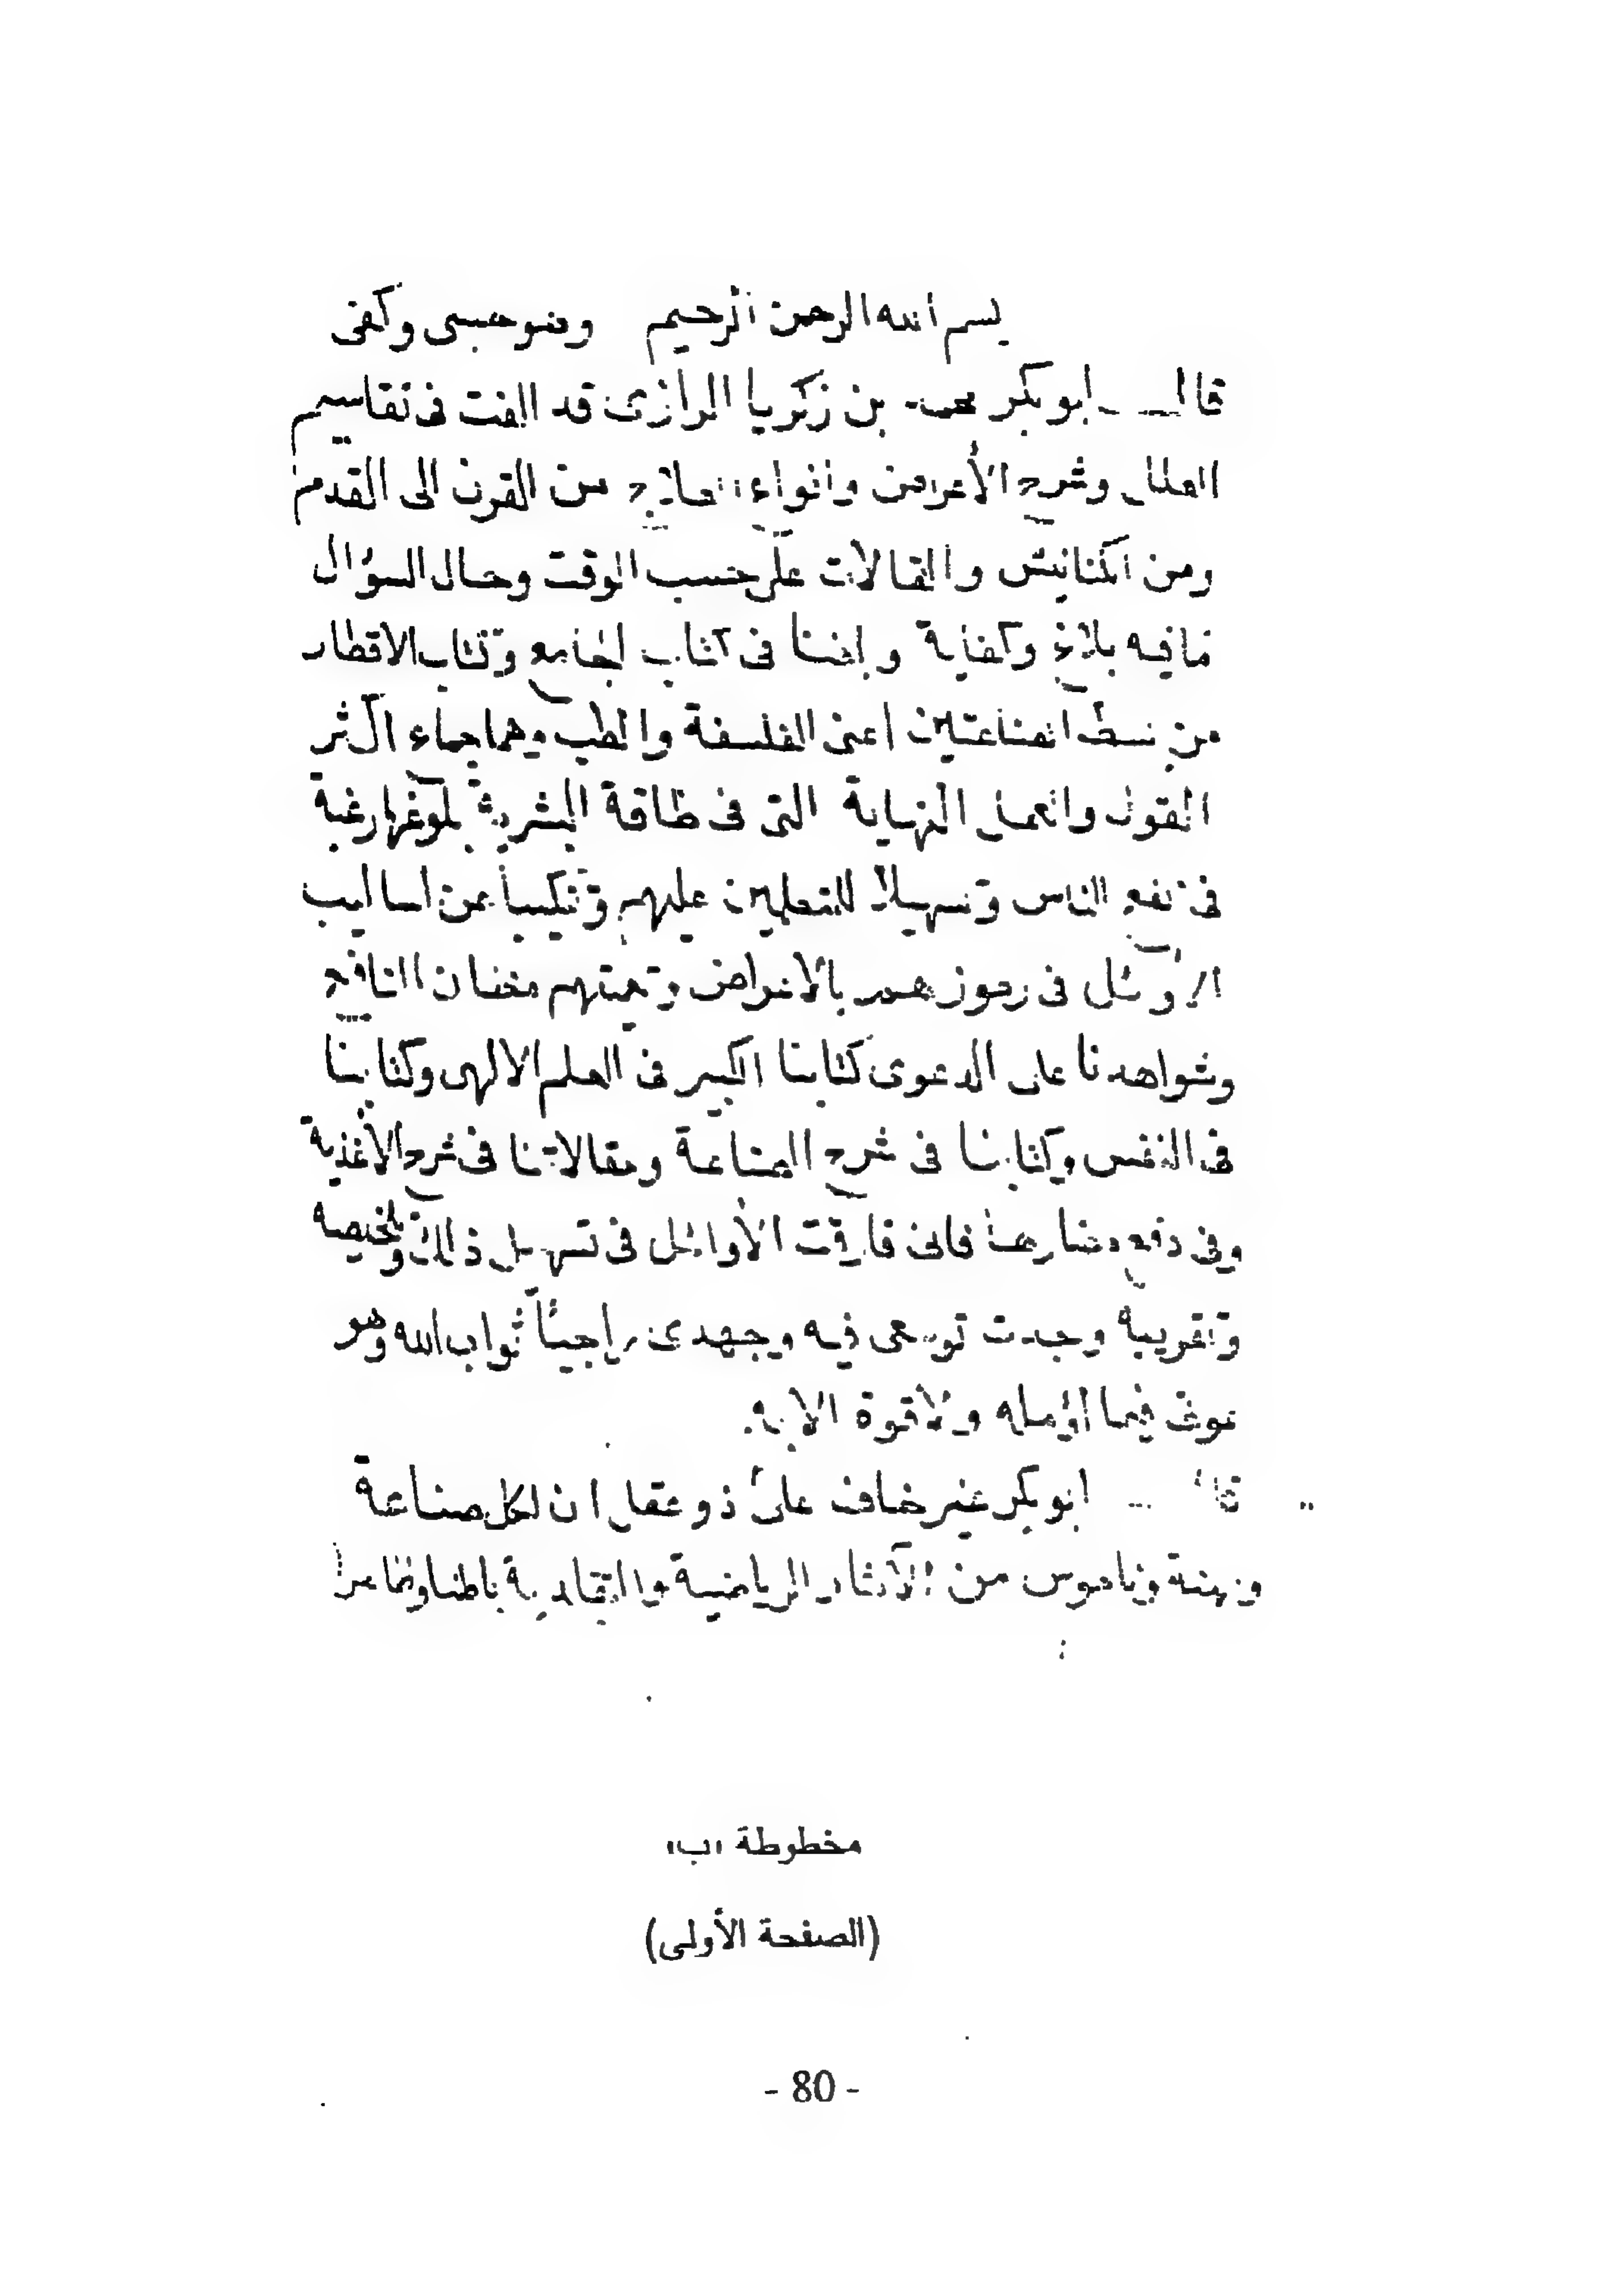 بسم الله الرحمن الرحيم وهو حسبى وكفى
قال ابو بكر محمد بن زكريا الرازى قد الفت فى تقاسيم
العلل وشرح الأعراض وانواع العلاج من القرن الى القدم
ومن الكنانيش والمقالات على حسب الوقت وحال السؤال
مافيه بلاغ وكفاية وايضا فى كتاب الجامع وكتاب الاقطار
من بسط الصناعتين اعنى الفلسفة والطب وهما جماء
القول والعمل النهاية التى فى طاقة البشرية بلوغها رغبة
فى نفع الناس وتسهيلا للمتعلمين عليهم وتنكيبا عن اساليب
الأوئل فى رموزهم بالاغراض المنافع
وشواهدنا على الدعوى كتابنا الكبير فى العلم الالهى وكتابنا
فى النفس وكتابنا فى شرح الصناعة ومقالاتنا فى شرح الأغذية
وفى دفع مضارها فانى فارقت الأوائل فى تسهيل ذلك وتلخيصه
وتقريبه وجدت فيه وجهدى راجيئا ثواب الله وهو
عونى فيما اؤمله ولا قوة الا به
قال ابو بكر غير خاف على ذو عقل ان لكل صناعة
ومهنة وناموس من الآثار الرياضية باطنا وظاهرا
مخطوطة "ب"
(الصفحة الأولى)
- 80 -